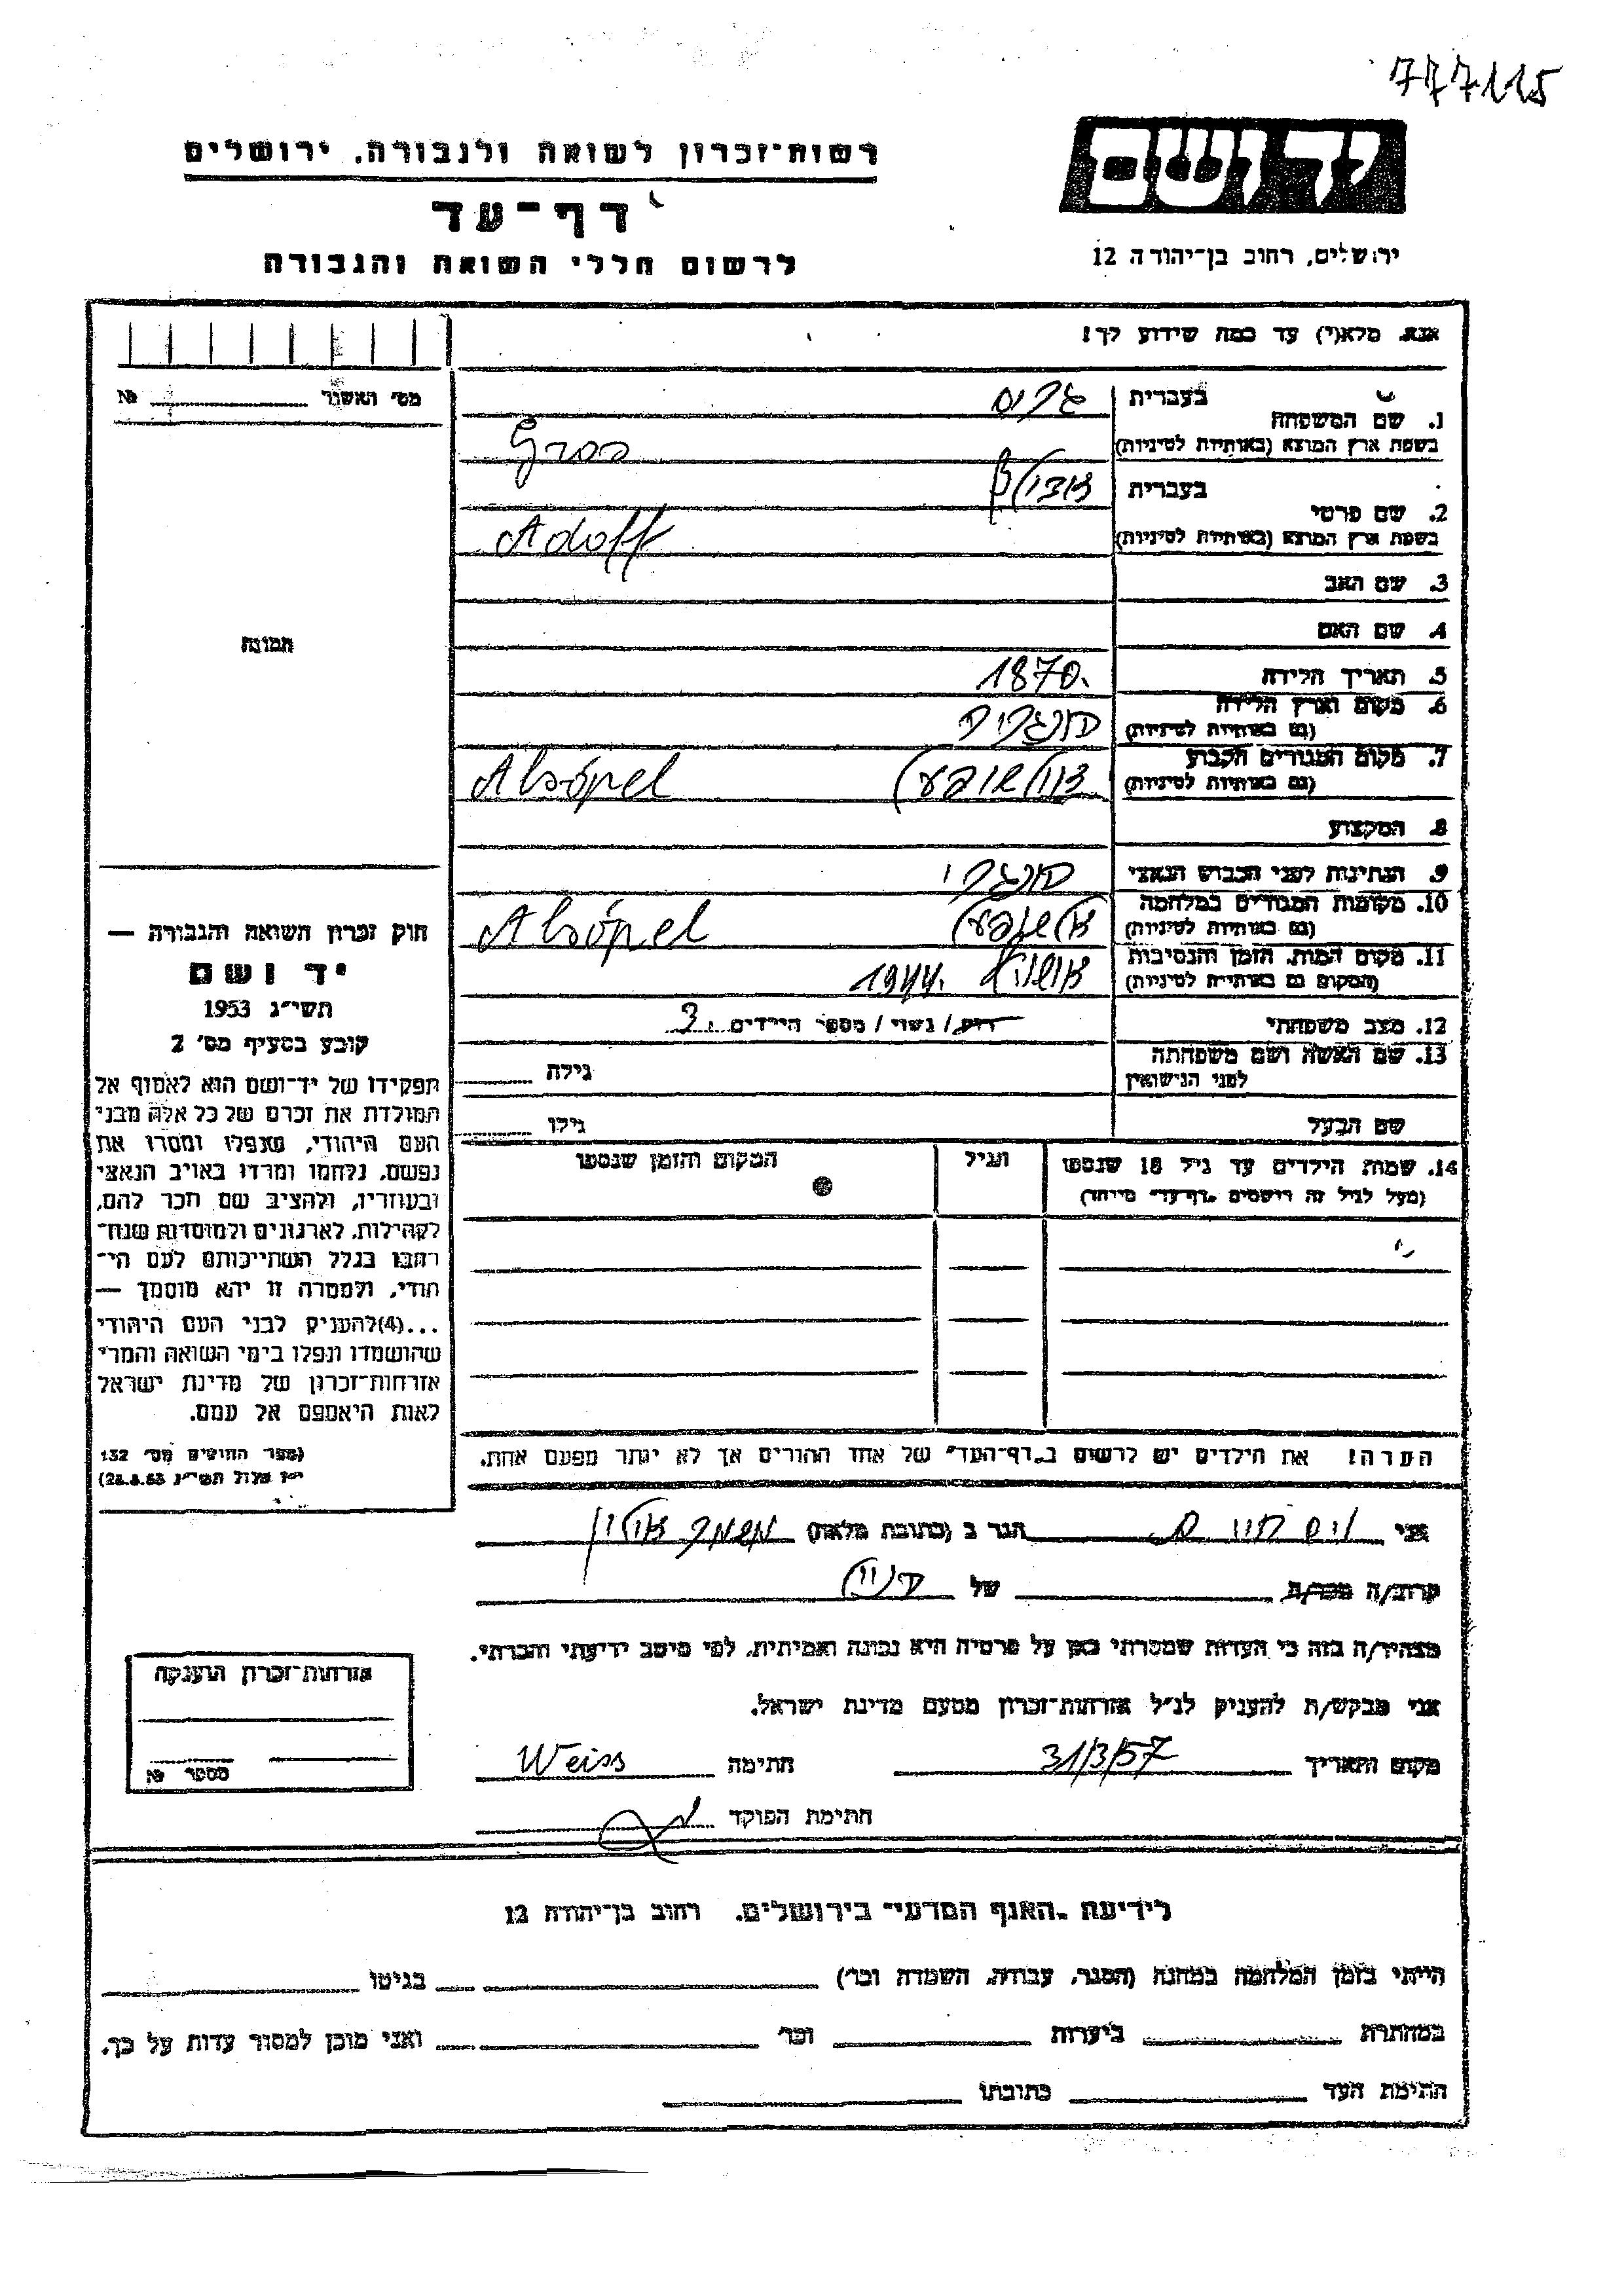 777115
יד ושם
רשות־זכרון לשואה ולגבורה, ירושלים
דף־עד
לרשום חללי השואה והגבורה
ירושלים, רחוב בן־יהודה 12
אנא, מלא(י) עד כמה שידוע לך!
מס׳ האשור № 
1. שם המשפחה
בעברית גרוס
בשפת ארץ המוצא (באותיות לטיניות) Gros
2. שם פרטי
בעברית אדולף
בשפת ארץ המוצא (באותיות לטיניות) Adolf
3. שם האב
4. שם האם
תמונה
5. תאריך הלידה 1870.
6. מקום וארץ הלידה
(גם באותיות לטיניות) הונגריה
7. מקום המגורים הקבוע
(גם באותיות לטיניות) Alsópel
8. המקצוע
9. הנתינות לפני הכבוש הנאצי הונגרי
10. מקומות המגורים במלחמה
(גם באותיות לטיניות) Alsópel
11. מקום המות, הזמן והנסיבות
(המקום גם באותיות לטיניות) 1944.
12. מצב משפחתי רווק / נשוי / מספר הילדים 3
13. שם האשה ושם משפחתה
לפני הנישואין גילה
שם הבעל גילו
14. שמות הילדים עד גיל 18 שנספו הגיל המקום והזמן שנספו
(מעל לגיל זה רושמים „דף־עד״ מיוחד)
הערה! את הילדים יש לרשום ב„דף־העד״ של אחד ההורים אך לא יותר מפעם אחת.
חוק זכרון השואה והגבורה —
יד ושם
תשי״ג 1953
קובע בסעיף מס׳ 2
תפקידו של יד־ושם הוא לאסוף אל
המולדת את זכרם של כל אלה מבני
העם היהודי, שנפלו ומסרו את
נפשם, נלחמו ומרדו באויב הנאצי
ובעוזריו, ולהציב שם וזכר להם,
לקהילות, לארגונים ולמוסדות שנח־
רבו בגלל השתייכותם לעם הי־
הודי, ולמטרה זו יהא מוסמך —
...(4) להעניק לבני העם היהודי
שהושמדו ונפלו בימי השואה והמרי
אזרחות־זכרון של מדינת ישראל
לאות היאספם אל עמם.
(ספר החוקים מס׳ 132
י״ז אלול תשי״ג 28.8.53)
אני וייס חיים הגר ב (כתובת מלאה)
קרוב/ה מכר/ה של
מצהיר/ה בזה כי העדות שמסרתי כאן על פרטיה היא נכונה ואמיתית, לפי מיטב ידיעתי והכרתי.
אני מבקש/ת להעניק לנ״ל אזרחות־זכרון מטעם מדינת ישראל.
מקום ותאריך 31/3/57 חתימה Weiss
חתימת הפוקד
אזרחות־זכרון הוענקה
מספר №
לידיעת „האגף המדעי״ בירושלים, רחוב בן־יהודה 12
הייתי בזמן המלחמה במחנה (הסגר, עבודה, השמדה וכו׳) בגיטו
במחתרת ביערות וכו׳ ואני מוכן למסור עדות על כך.
חתימת העד כתובתו